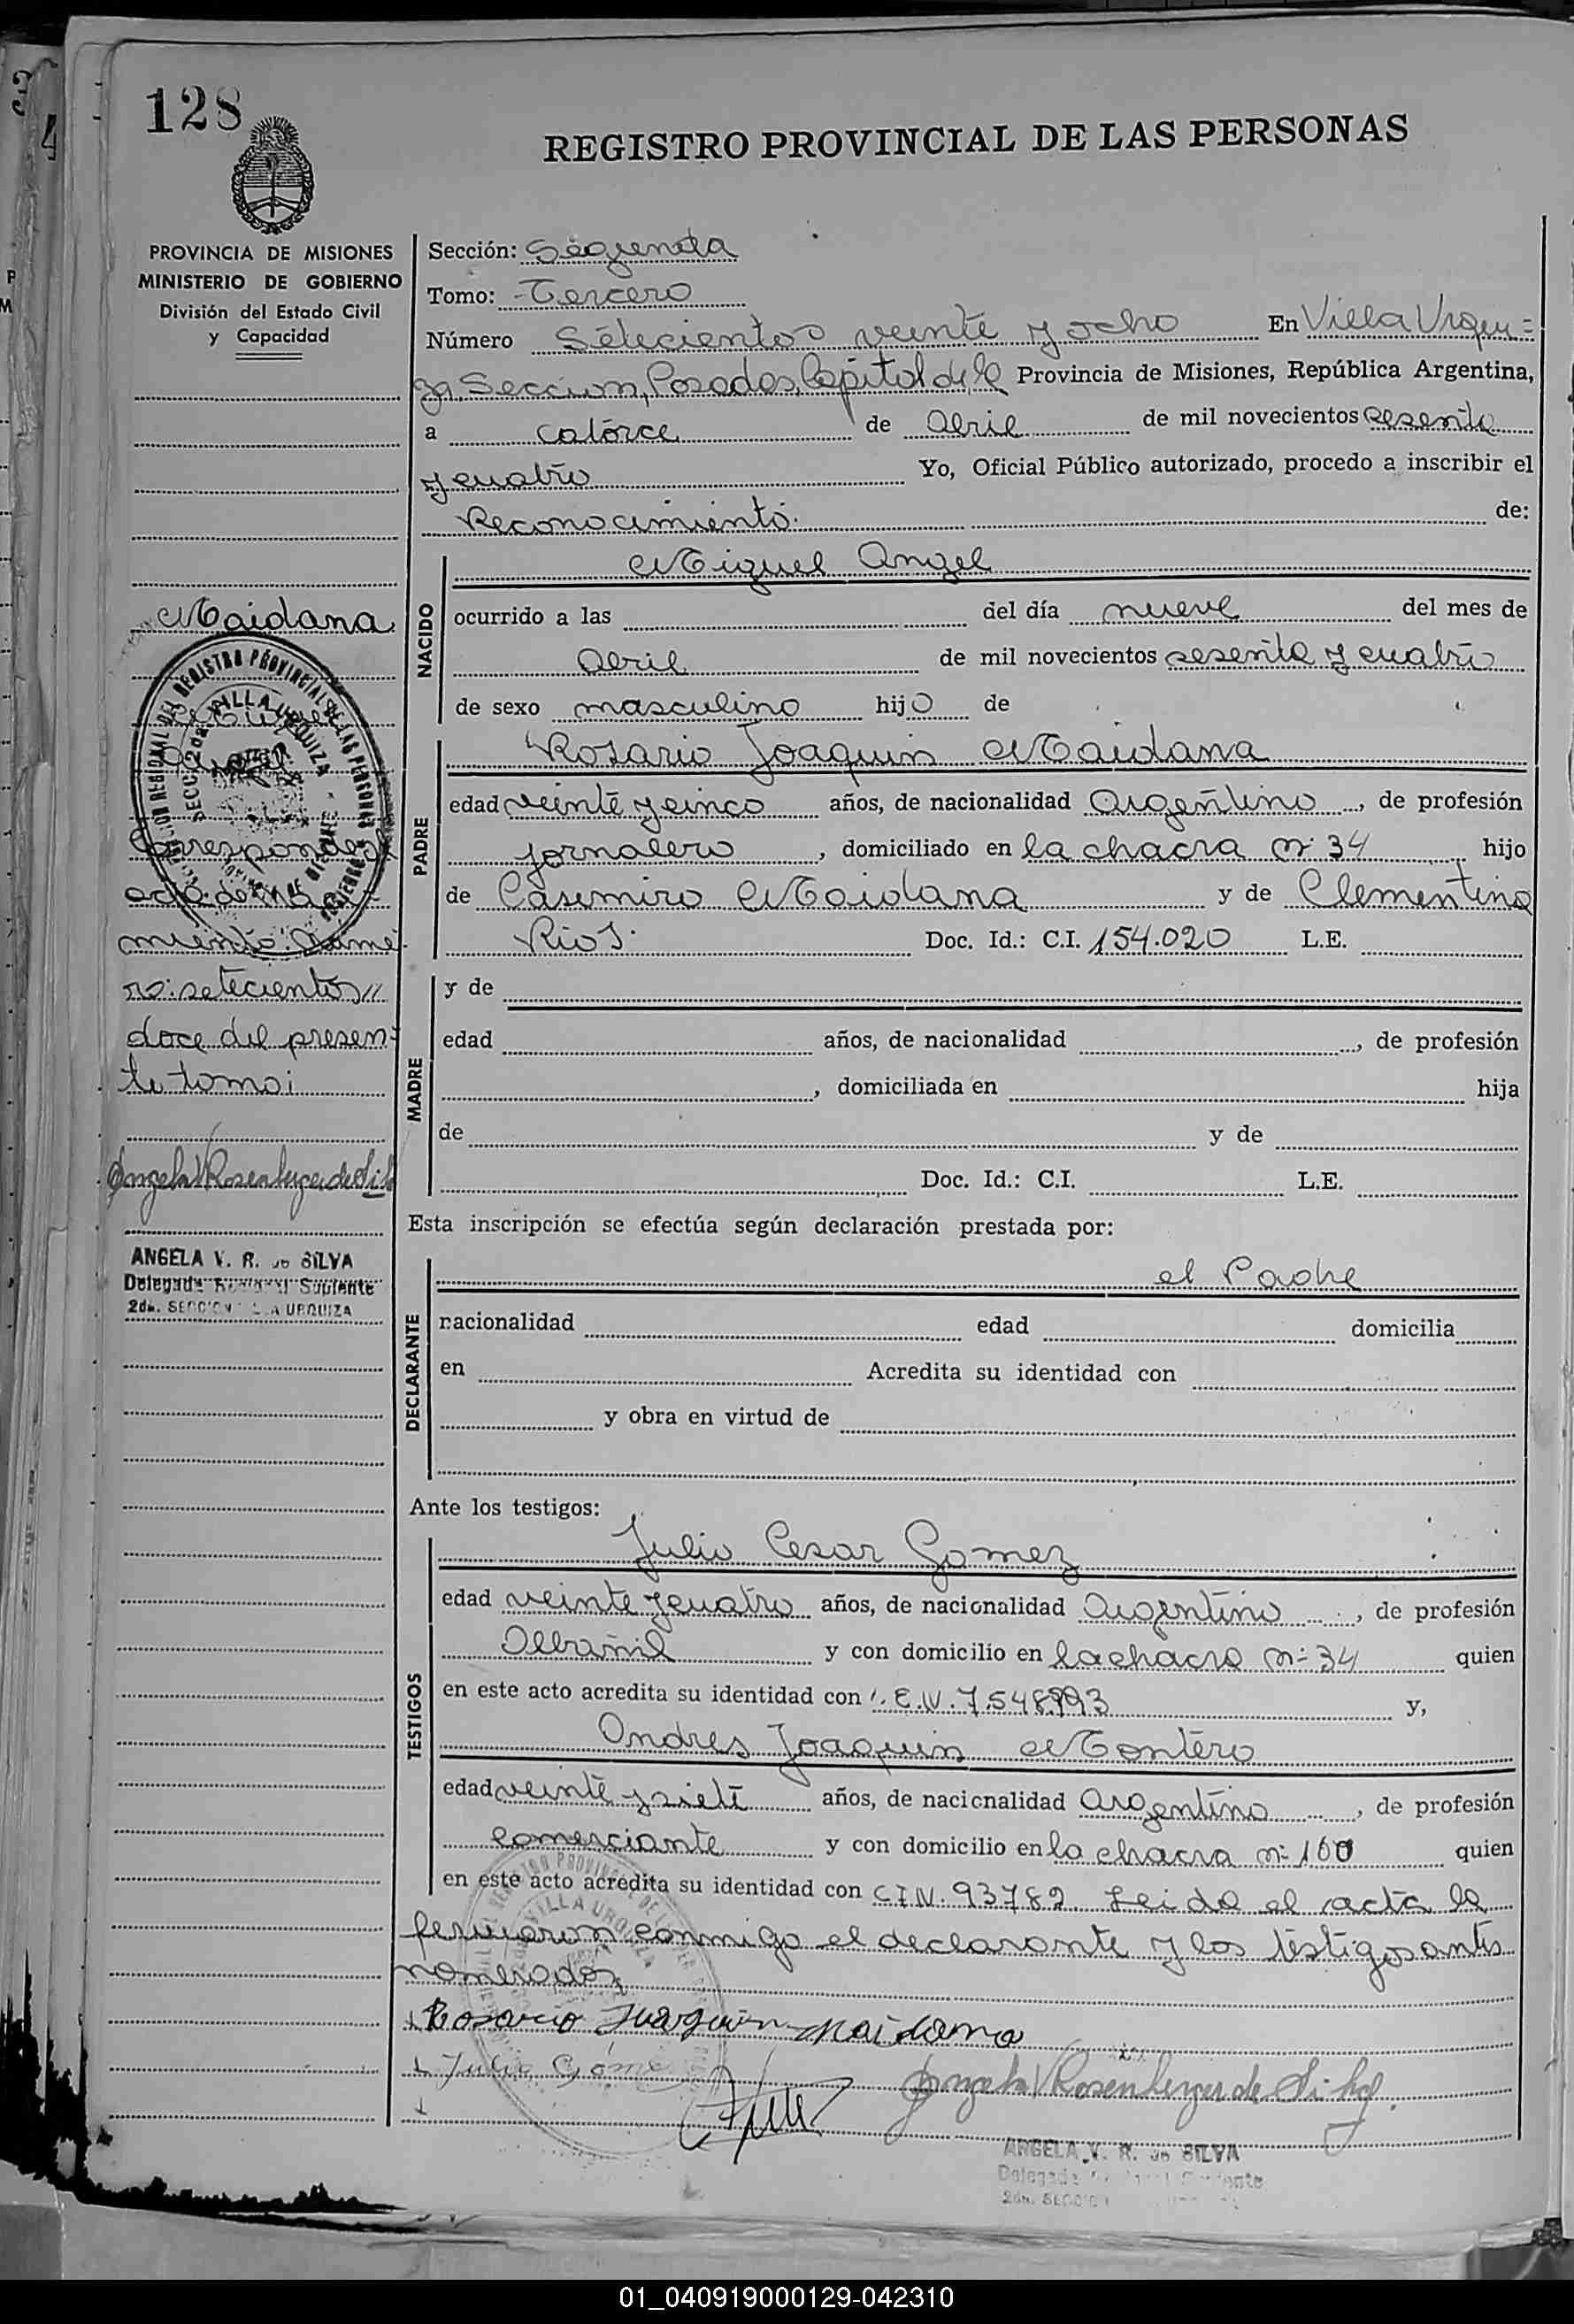 128
REGISTRO PROVINCIAL DE LAS PERSONAS
PROVINCIA DE MISIONES
MINISTERIO DE GOBIERNO
División del Estado Civil
y Capacidad
Sección: Segunda
Tomo: Tercero
Número Setecientos veinte y ocho En Villa Urqui=
za Seccion, Posadas, Capital de la Provincia de Misiones, República Argentina,
a catorce de Abril de mil novecientos sesenta
y cuatro Yo, Oficial Público autorizado, procedo a inscribir el
Reconocimiento. de:
NACIDO
Miguel Angel
ocurrido a las del día nueve del mes de
Abril de mil novecientos sesenta y cuatro
de sexo masculino hijo de
PADRE
Rosario Joaquin Maidana
edad veinte y cinco años, de nacionalidad Argentino, de profesión
jornalero, domiciliado en la chacra nº 34 hijo
de Casimiro Maidana y de Clementina
Rios. Doc. Id.: C.I. 154.020 L.E.
MADRE
y de
edad años, de nacionalidad , de profesión
, domiciliada en hija
de y de
Doc. Id.: C.I. L.E.
Esta inscripción se efectúa según declaración prestada por:
DECLARANTE
el Padre
nacionalidad edad domicilia
en Acredita su identidad con
y obra en virtud de
Ante los testigos:
TESTIGOS
Julio Cesar Gomez
edad veinte y cuatro años, de nacionalidad Argentino, de profesión
Albañil y con domicilio en la chacra nº 34 quien
en este acto acredita su identidad con y,
Andres Joaquin Montero
edad veinte y siete años, de nacionalidad Argentino, de profesión
comerciante y con domicilio en la chacra nº quien
en este acto acredita su identidad con C.I.N. 93782. Leida el acta la
firmaron conmigo el declarante y los testigos antes
nomerados
Rosario Juaquin Maidana
Julio Gómez
Angela V Rosenberger de Silva
ANGELA V. R. de SILVA
Delegada Suplente
2da. SECCION
Maidana
Miguel
Angel
Corresponde al
acta de naci
miento núme
ro: setecientos //
doce del presen=
te tomo;
Angela V Rosenberger de Silva
ANGELA V. R. de SILVA
Delegada Regional Suplente
2da. SECCION VILLA URQUIZA
REGISTRO PROVINCIAL DE LAS PERSONAS
VILLA URQUIZA
01_040919000129-042310